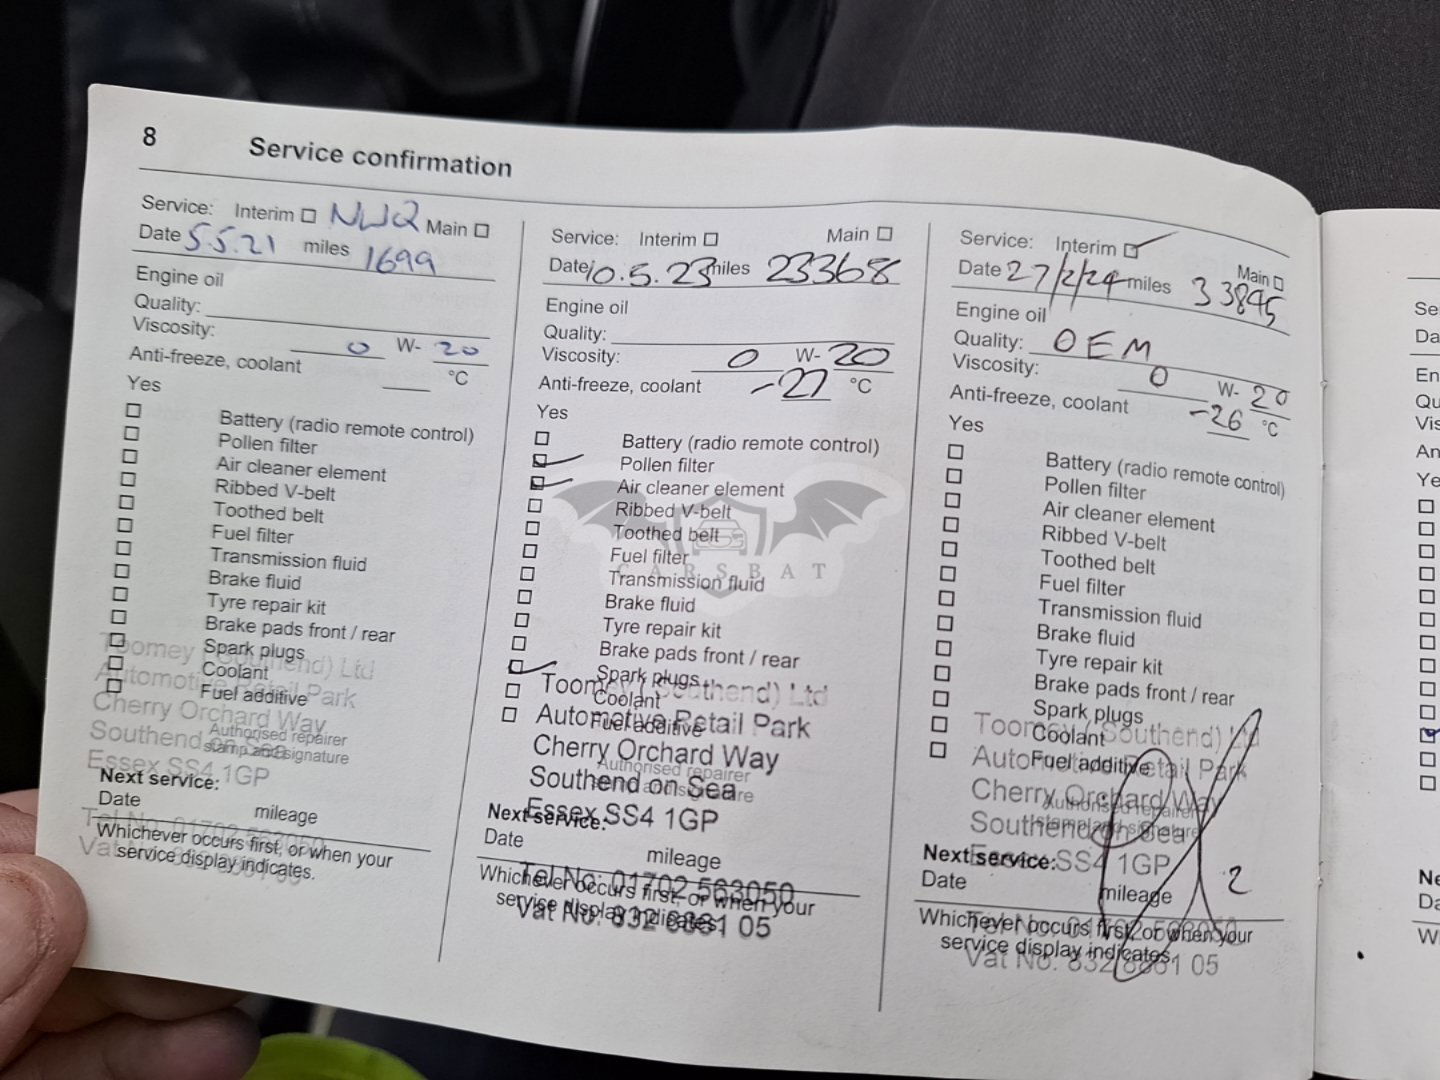 8 Service confirmation
Service: Interim Main
Date 5.5.21 miles 1699
Engine oil
Quality:
Viscosity: 0 W- 20
Anti-freeze, coolant °C
Yes
Battery (radio remote control)
Pollen filter
Air cleaner element
Ribbed V-belt
Toothed belt
Fuel filter
Transmission fluid
Brake fluid
Tyre repair kit
Brake pads front / rear
Spark plugs
Coolant
Fuel additive
Toomey (Southend) Ltd
Automotive Retail Park
Cherry Orchard Way
Southend on Sea
Essex SS4 1GP
Authorised repairer
stamp and signature
Next service:
Date mileage
Tel No: 01702 563050
Whichever occurs first, or when your
service display indicates.
Service: Interim Main
Date 10.5.23 miles 23368
Engine oil
Quality:
Viscosity: 0 W- 20
Anti-freeze, coolant -27 °C
Yes
Battery (radio remote control)
Pollen filter
Air cleaner element
Ribbed V-belt
Toothed belt
Fuel filter
Transmission fluid
Brake fluid
Tyre repair kit
Brake pads front / rear
Spark plugs
Coolant
Fuel additive
Toomey (Southend) Ltd
Automotive Retail Park
Cherry Orchard Way
Southend on Sea
Essex SS4 1GP
Authorised repairer
stamp and signature
Next service:
Date mileage
Tel No: 01702 563050
Whichever occurs first, or when your
service display indicates.
Vat No: 832 8881 05
CARSBAT
Service: Interim Main
Date 27/2/24 miles 33895
Engine oil
Quality: OEM
Viscosity: 0 W- 20
Anti-freeze, coolant -26 °C
Yes
Battery (radio remote control)
Pollen filter
Air cleaner element
Ribbed V-belt
Toothed belt
Fuel filter
Transmission fluid
Brake fluid
Tyre repair kit
Brake pads front / rear
Spark plugs
Coolant
Fuel additive
Toomey (Southend) Ltd
Automotive Retail Park
Cherry Orchard Way
Southend on Sea
Essex SS4 1GP
Authorised repairer
stamp and signature
Next service:
Date mileage
2
Tel No: 01702 563050
Whichever occurs first, or when your
service display indicates.
Vat No: 832 8881 05
Se
Da
En
Qu
Vis
An
Ye
Ne
Da
W